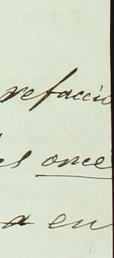 refacció
es once
a en